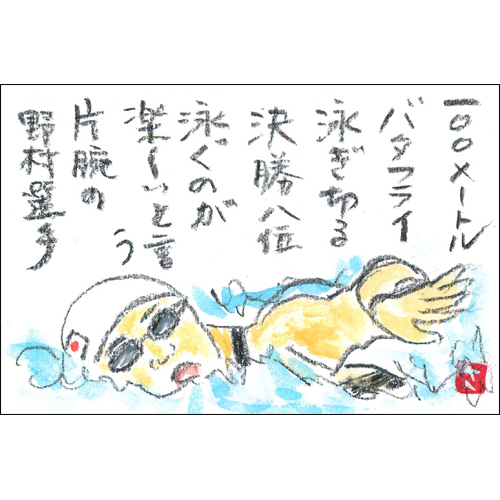 一〇〇メートル
バタフライ
泳ぎ切る
決勝八位
泳ぐのが
楽しいと言う
片腕の
野村選手